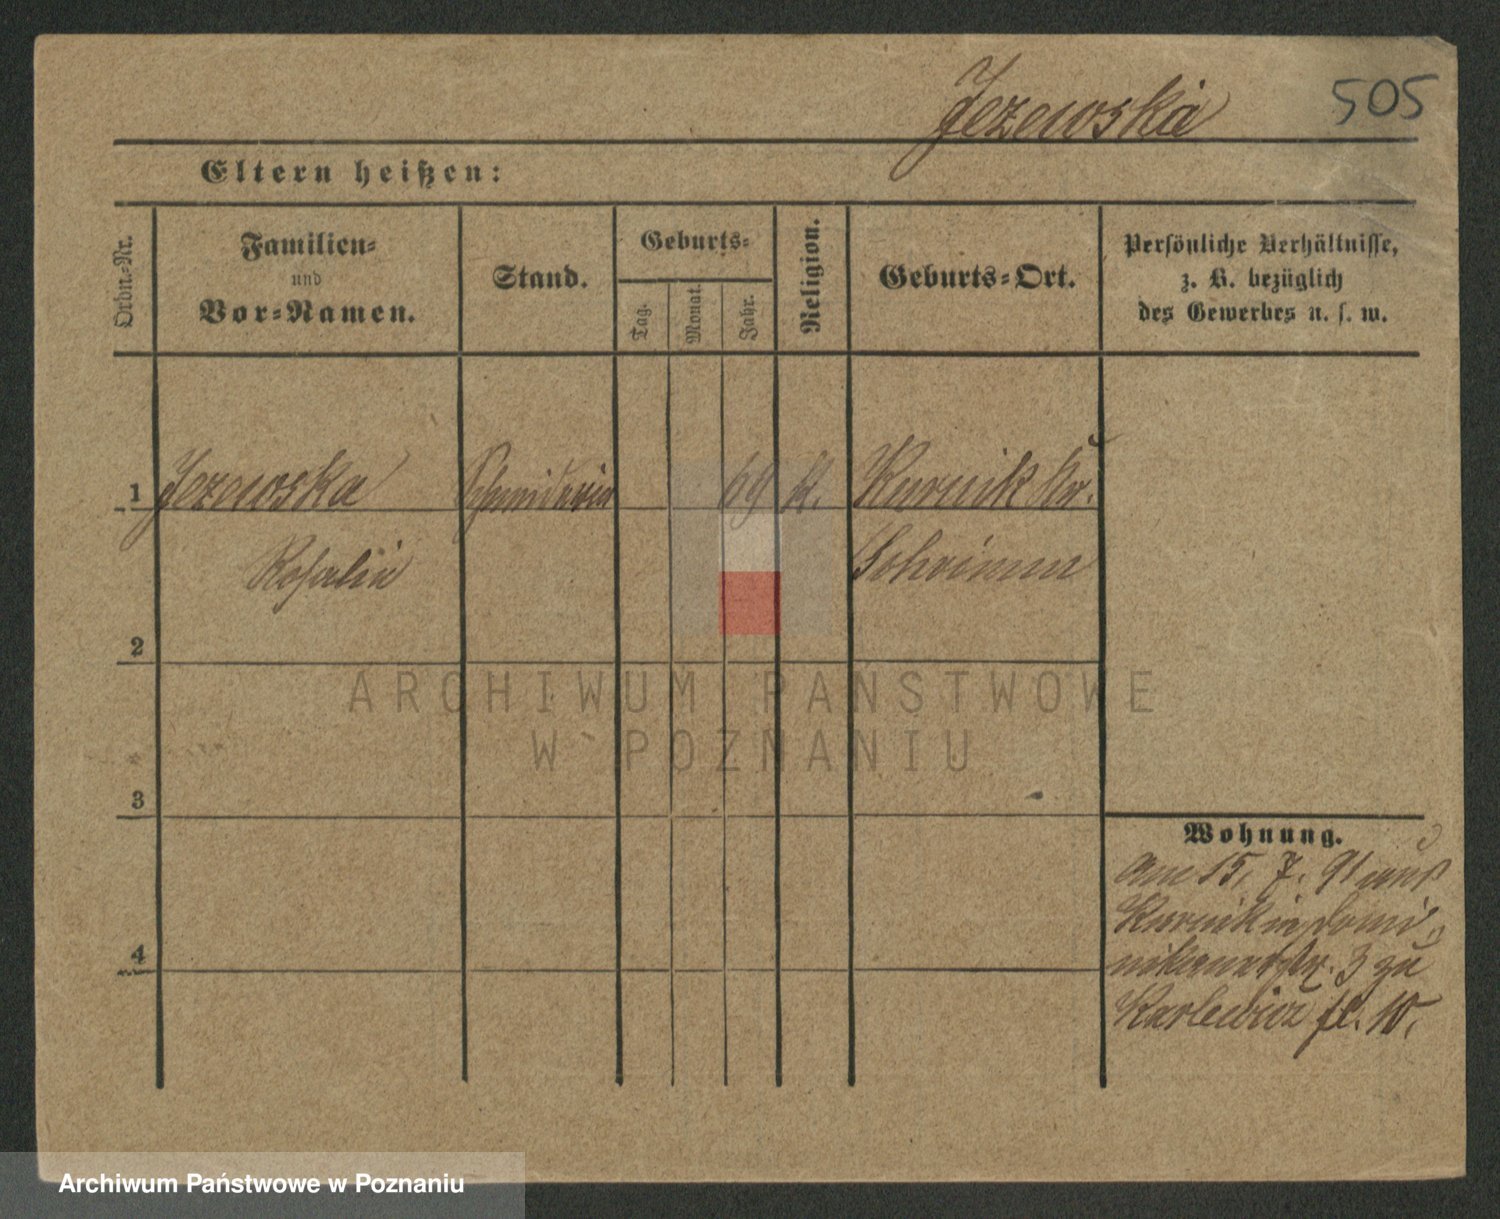 Jezewska
505
Eltern heißen:
Ordn.-Nr.
Familien-
und
Vor-Namen.
Stand.
Geburts-
Tag.
Monat.
Jahr.
Religion.
Geburts-Ort.
Persönliche Verhältnisse,
z. B. bezüglich
des Gewerbes u. s. w.
1
Jezewska
Schneiderin
69
kt.
Kurnik Kr.
Rosalie
Schrimm
2
ARCHIWUM PAŃSTWOWE
W POZNANIU
3
Wohnung.
Am 15. 7. 91 aus
Kurnik in Domi-
nikanerstr. 3 zu
Karlewicz
4
Archiwum Państwowe w Poznaniu